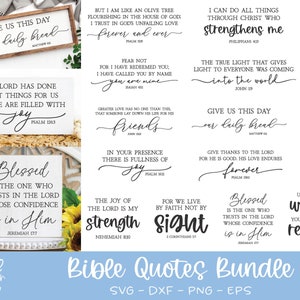 US THIS DAY
daily bread
MATTHEW 6:11
LORD HAS DONE
AT THINGS FOR US
E ARE FILLED WITH
joy
PSALM 126:3
Blessed
IS THE ONE WHO
TRUSTS IN THE LORD
WHOSE CONFIDENCE
is in Him
JEREMIAH 17:7
BUT I AM LIKE AN OLIVE TREE
FLOURISHING IN THE HOUSE OF GOD
I TRUST IN GOD'S UNFAILING LOVE
forever and ever
PSALM 52:8
FEAR NOT
FOR I HAVE REDEEMED YOU;
I HAVE CALLED YOU BY NAME
you are mine
ISAIAH 43:1
GREATER LOVE HAS NO ONE THAN THIS,
THAT SOMEONE LAY DOWN HIS LIFE FOR HIS
friends
JOHN 15:13
IN YOUR PRESENCE
THERE IS FULLNESS OF
joy
PSALM 16:11
THE JOY OF
THE LORD IS MY
strength
NEHEMIAH 8:10
FOR WE LIVE
BY FAITH NOT BY
sight
2 CORINTHIANS 5:7
I CAN DO ALL THINGS
THROUGH CHRIST WHO
strengthens me
PHILIPPIANS 4:13
THE TRUE LIGHT THAT GIVES
LIGHT TO EVERYONE WAS COMING
into the world
JOHN 1:9
GIVE US THIS DAY
our daily bread
MATTHEW 6:11
GIVE THANKS TO THE LORD
FOR HE IS GOOD; HIS LOVE ENDURES
forever
PSALM 118:1
Blessed
IS THE ONE WHO
TRUSTS IN THE LORD
WHOSE CONFIDENCE
is in Him
JEREMIAH 17:7
Bible Quotes Bundle
SVG - DXF - PNG - EPS